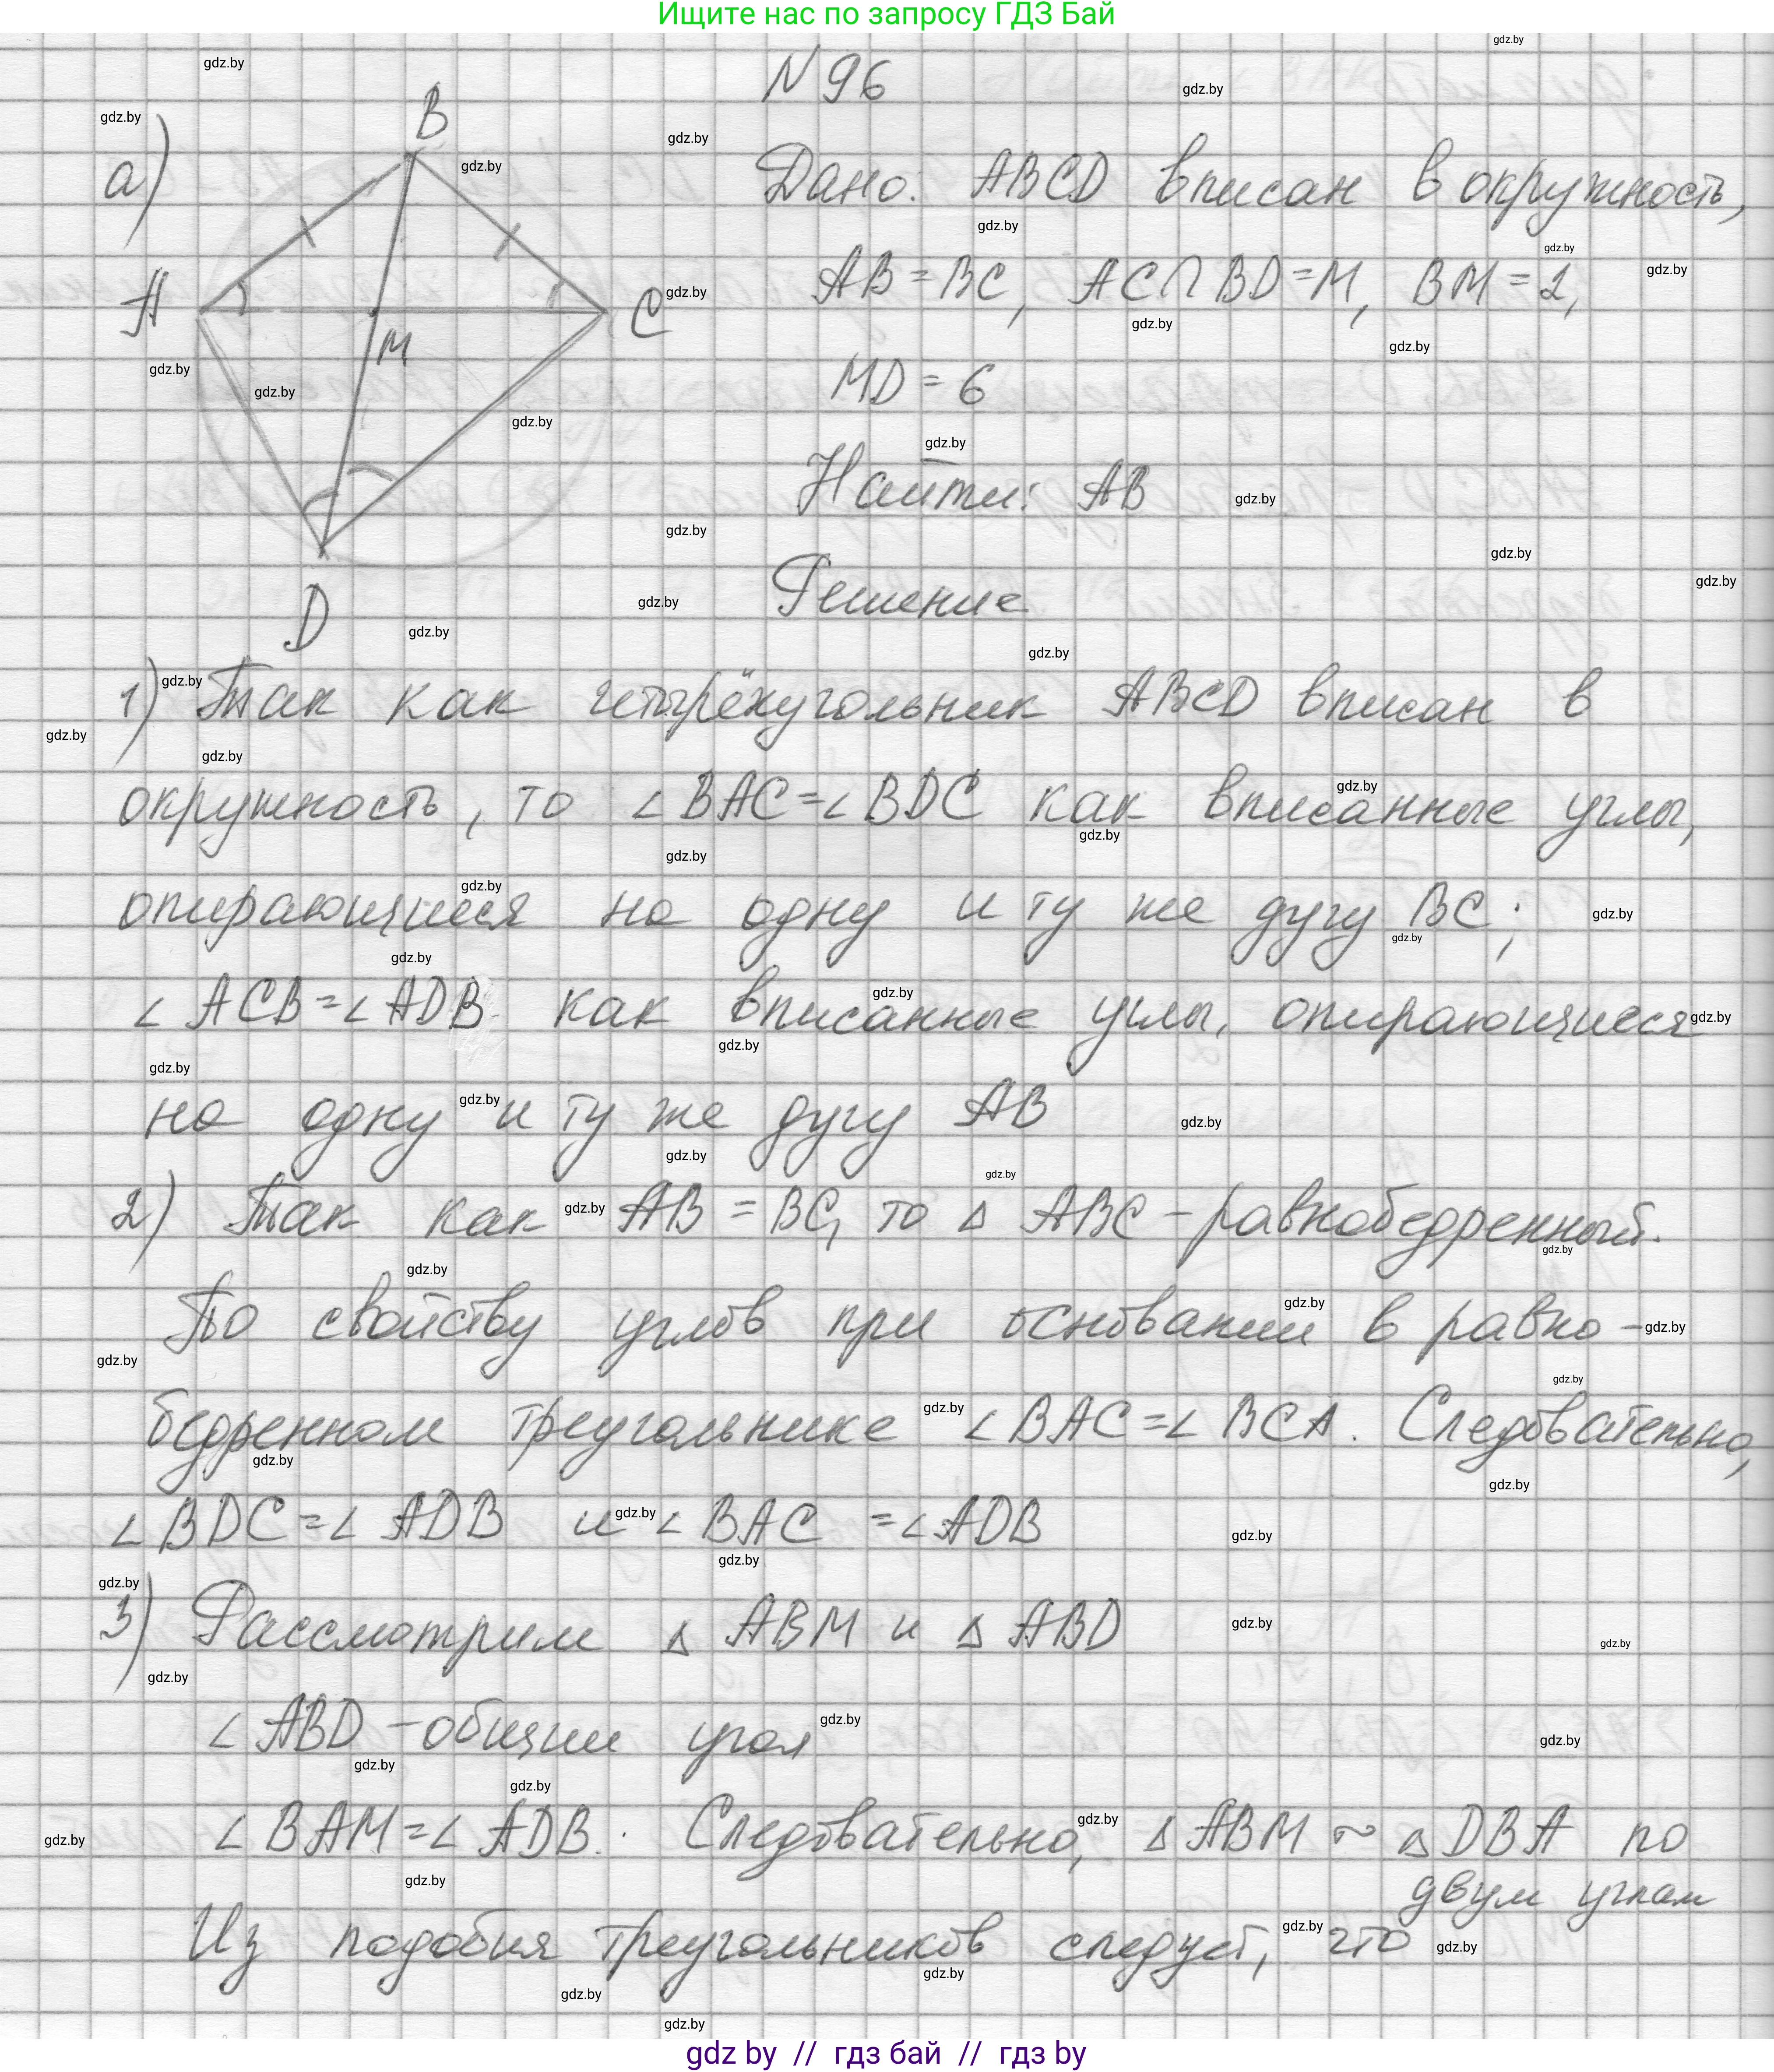 Ищите нас по запросу ГДЗ Бай
N 96
а)
B
A
C
M
D
Дано: ABCD вписан в окружность,
AB = BC, AC∩BD=M, BM = 2,
MD = 6
Найти: AB
Решение
1) Так как четырёхугольник ABCD вписан в
окружность, то ∠BAC=∠BDC как вписанные углы,
опирающиеся на одну и ту же дугу BC;
∠ACB=∠ADB как вписанные углы, опирающиеся
на одну и ту же дугу AB
2) Так как AB = BC, то △ ABC - равнобедренный.
По свойству углов при основании в равно-
бедренном треугольнике ∠BAC=∠BCA. Следовательно,
∠BDC=∠ADB и ∠BAC =∠ADB
3) Рассмотрим △ ABM и △ ABD
∠ABD - общий угол
∠BAM=∠ADB. Следовательно, △ABM ~ △DBA по
двум углам
Из подобия треугольников следует, что
gdz by // гдз бай // гдз by